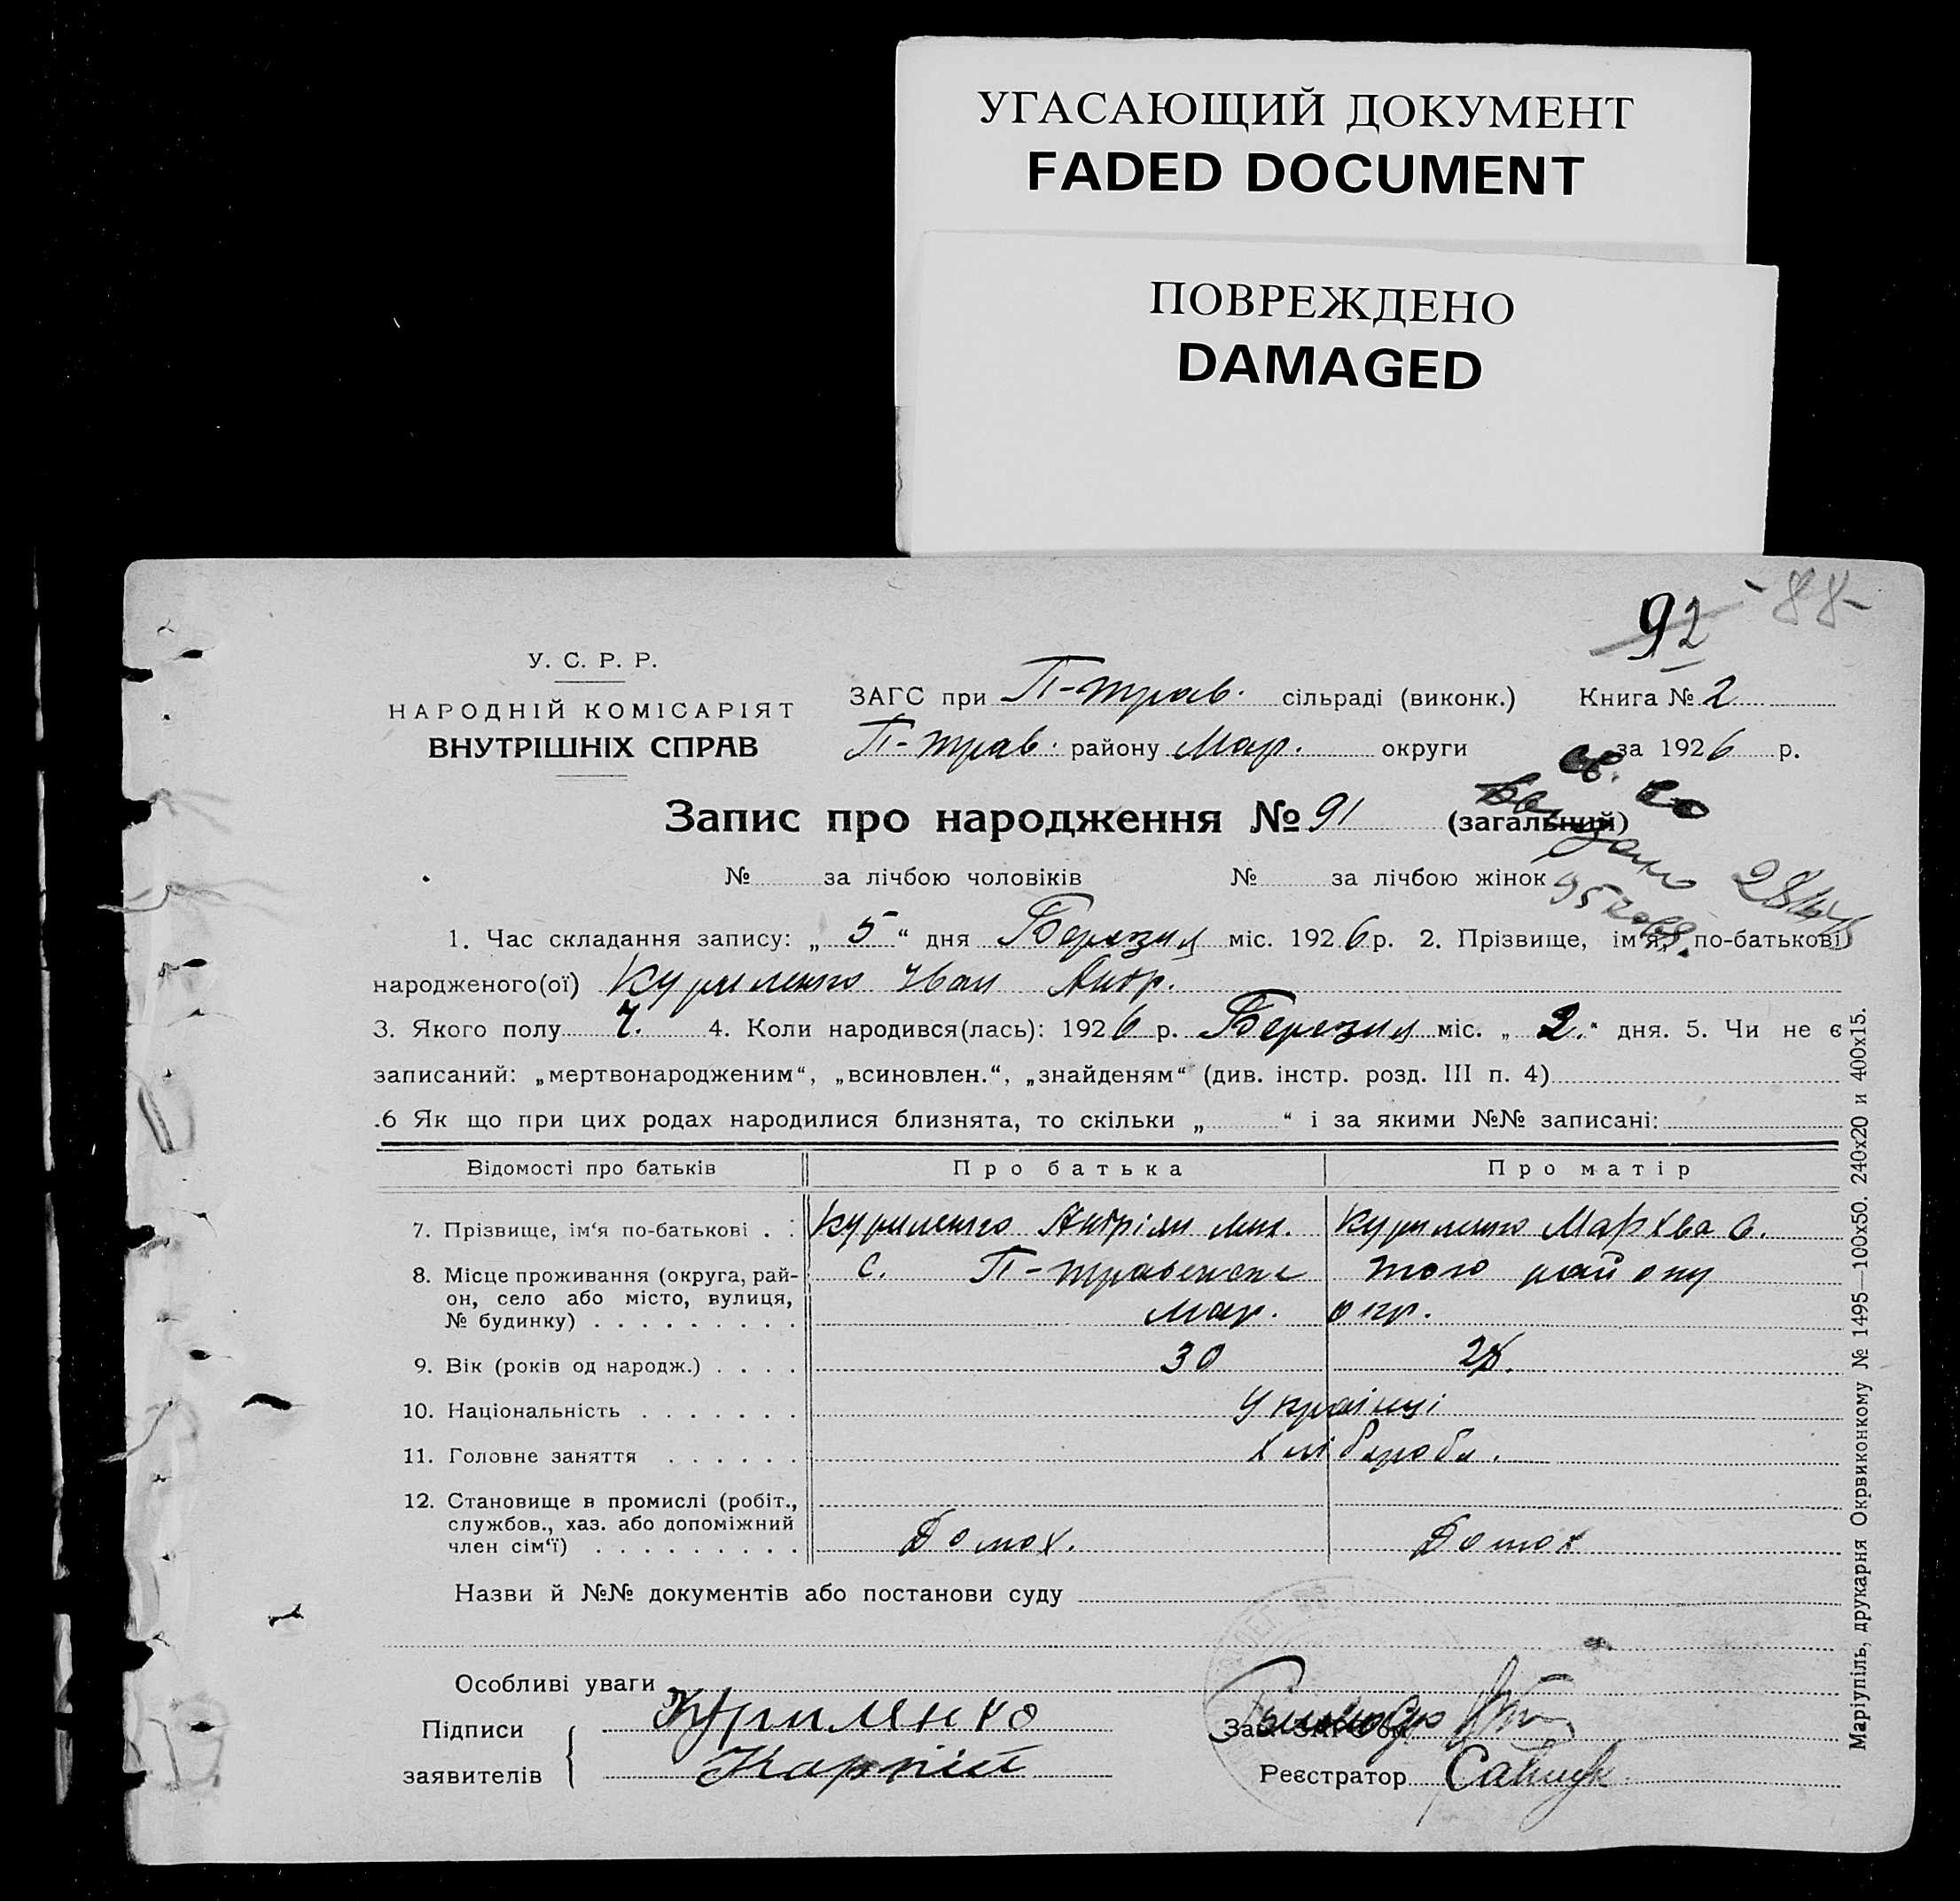 УГАСАЮЩИЙ ДОКУМЕНТ
FADED DOCUMENT
ПОВРЕЖДЕНО
DAMAGED
92 - 88 -
У. С. Р. Р.
НАРОДНІЙ КОМІСАРІЯТ
ВНУТРІШНІХ СПРАВ
ЗАГС при П-трав. сільраді (виконк.) Книга № 2
П-трав. району Мар. округи за 1926 р.
Запис про народження № 91 (загальний)
№ за лічбою чоловіків № за лічбою жінок
1. Час складання запису: „ 5 “ дня Березня міс. 1926 р. 2. Прізвище, ім'я, по-батькові
народженого(ої) Куриленко Іван Андр.
3. Якого полу Ч. 4. Коли народився(лась): 1926 р. Березня міс. „ 2. “ дня. 5. Чи не є
записаний: „мертвонародженим“, „всиновлен.“, „знайденям“ (див. інстр. розд. III п. 4)
.6 Як що при цих родах народилися близнята, то скільки „ “ і за якими №№ записані:
Відомості про батьків Про батька Про матір
7. Прізвище, ім‘я по-батькові . : Куриленко Андріян Мик. Куриленко Мархва О.
8. Місце проживання (округа, рай-
он, село або місто, вулиця,
№ будинку) . . . . . . . . .
с. П-травенське того району
Мар. окр.
9. Вік (років од народж.) . . . . 30 28.
10. Національність . . . . . . . Українці
11. Головне заняття . . . . . . хлібороби.
12. Становище в промислі (робіт.,
службов., хаз. або допоміжний
член сім‘ї) . . . . . . . . . Домох. Домох
Назви й №№ документів або постанови суду
Особливі уваги
Підписи
заявителів
Куриленко
Карпій
Зав. ЗАГС'ом
Реєстратор
Маріупіль, друкарня Окрвиконкому № 1495—100х50. 240х20 и 400х15.